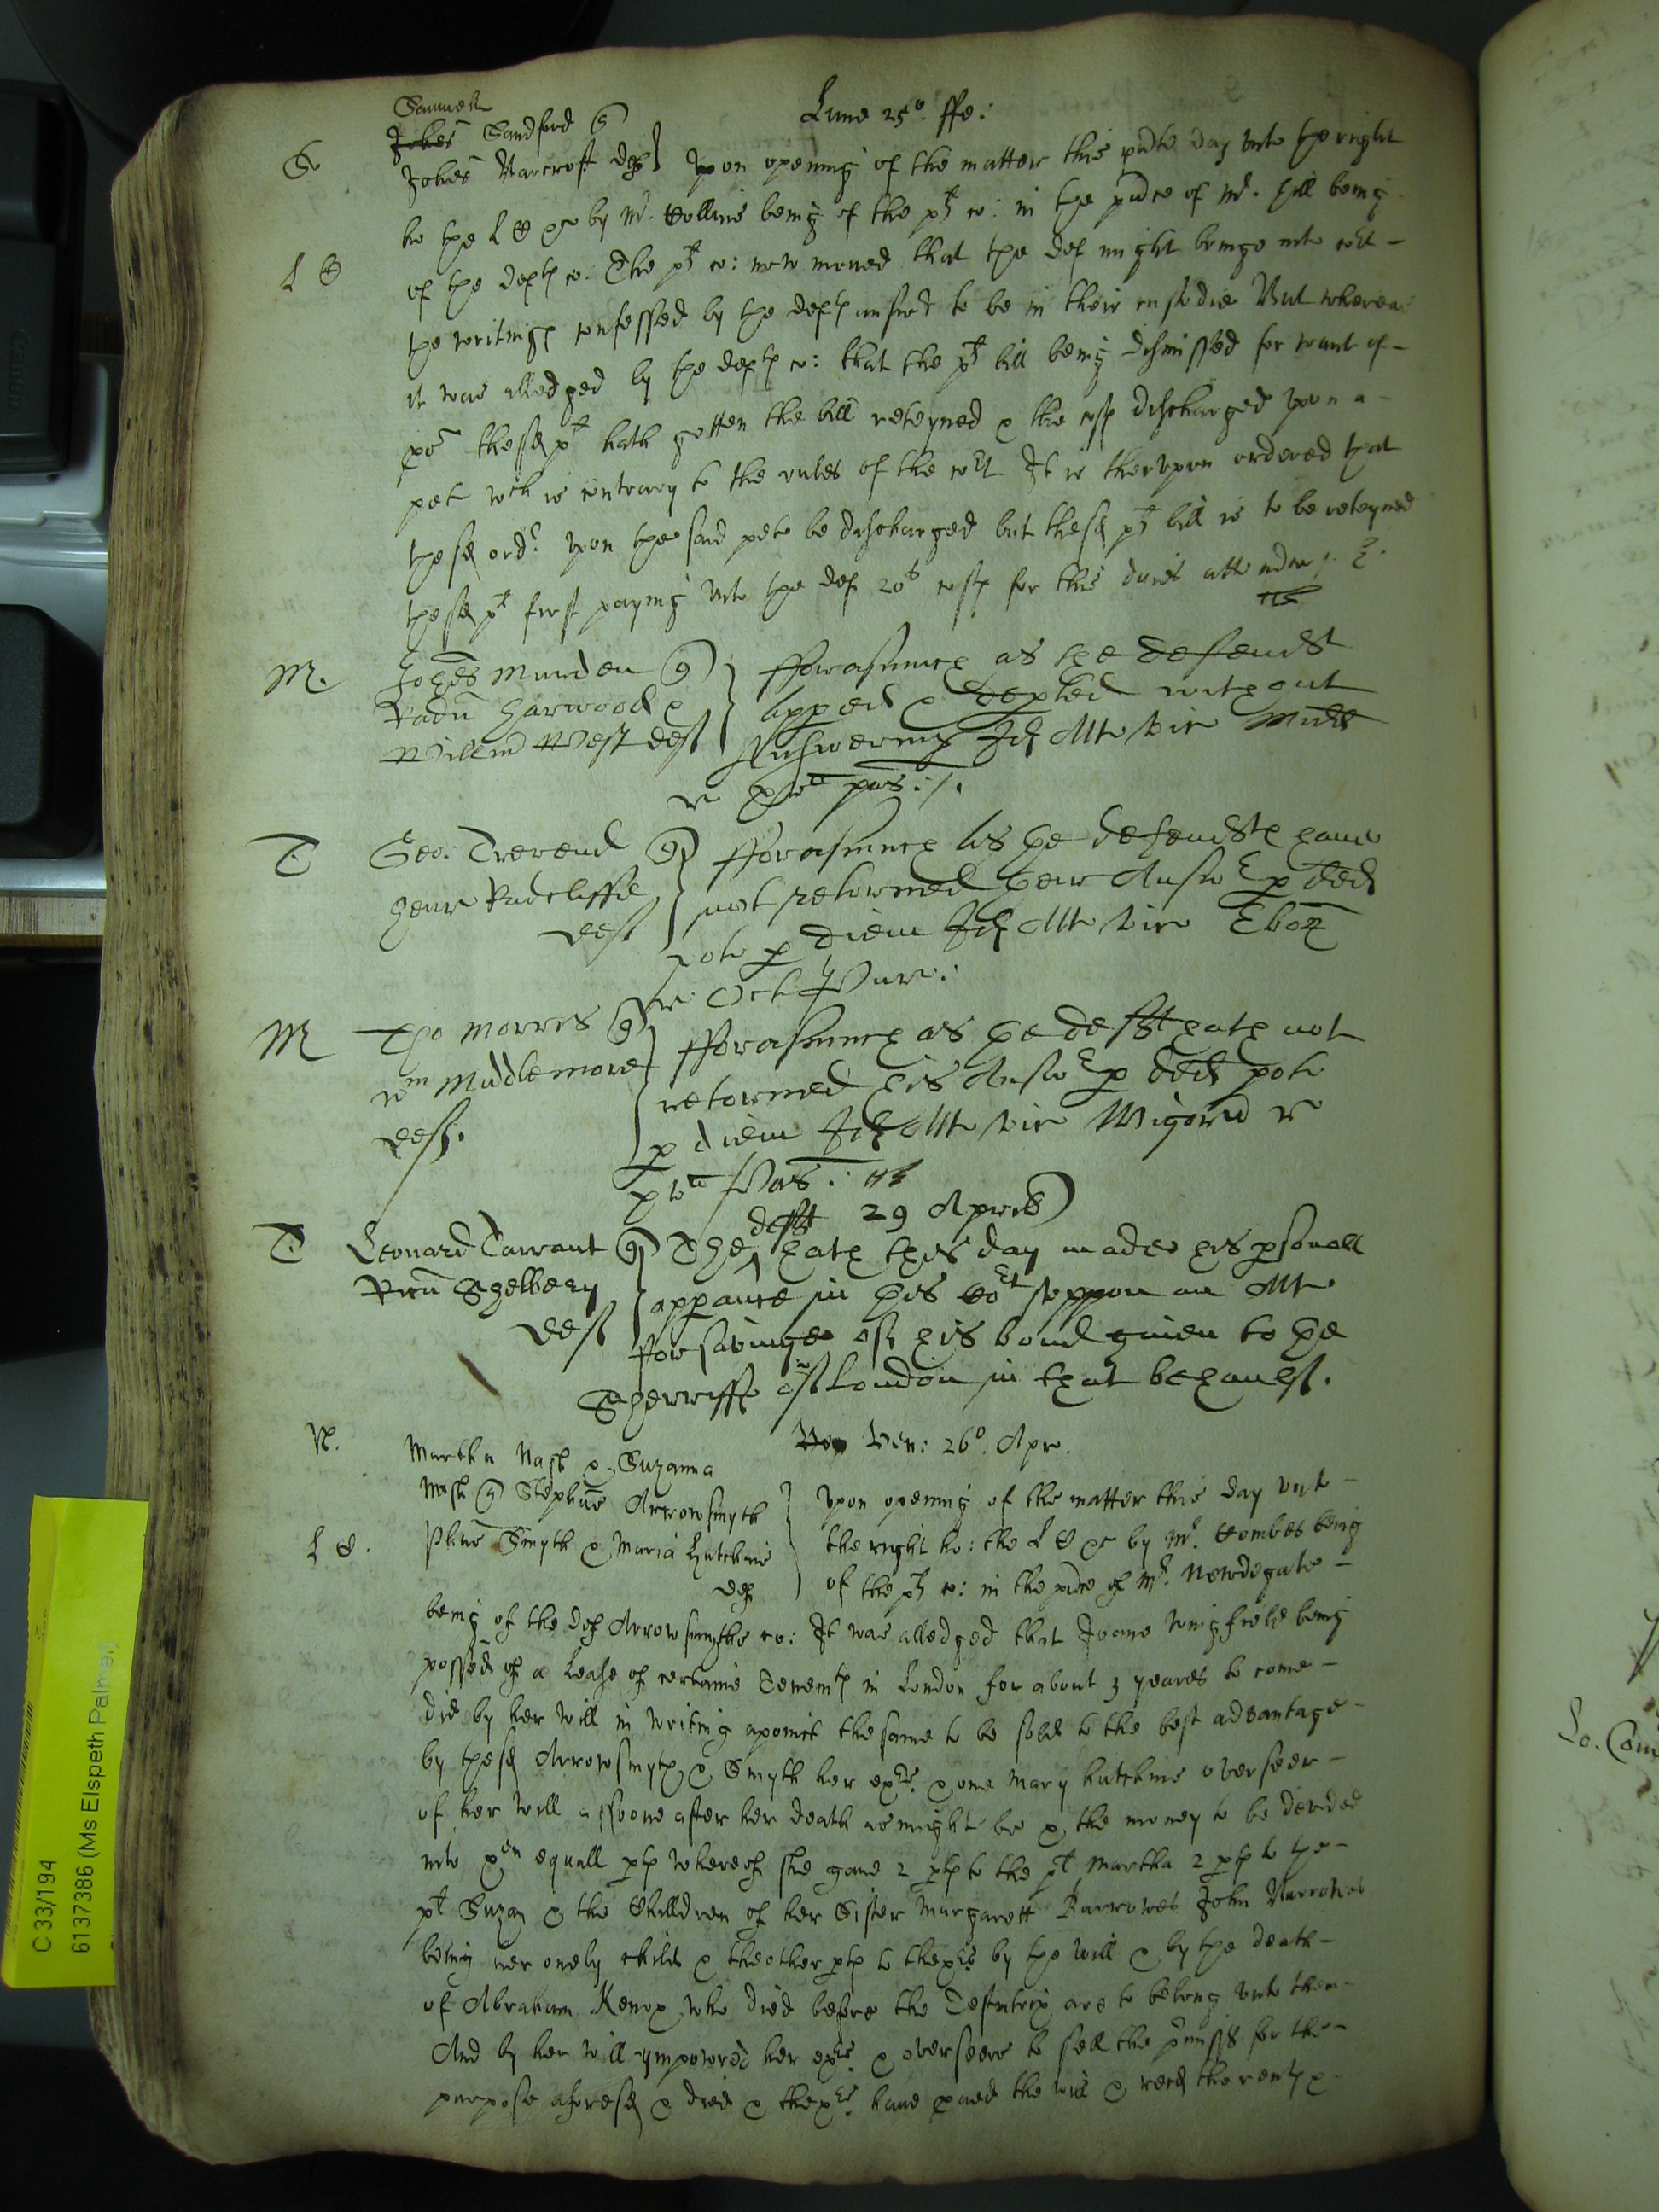 Lune 25o. ffe:
Samuel
Johes Sandford
S Johes Barcroft def Upon opening of the matter this pnte day unto the right
ho the L C &c by Mr. Hollins being of the plt co: in the pnce of Mr. Hill being
L C
of the deftes co. The plt co: now moued that the def might bringe into cort
the writinges confessed by the deftes answer to be in their custodie But whereas
it was alledged by the deftes co: that the plt bill being dismissed for want of
pros the sd plt hath gotten the bill reteyned & the costes discharged upon a
pet wch is contrary to the rules of the cort It is therupon ordered that
the sd ordr upon the said pet be discharged but the sd plt bill is to be reteyned
the sd plt first paying unto the def 20s costes for this daies attendnce
M. Johes Murden
Radu Harwood &
Willm West def
fforasmuch as the defendt
apped & depted without
Answering Id Att vic Midd
r pas:
T Geo: Trerend
Henr Radcliffe
def
fforasmuch as the defendtes haue
not retorned their Answr p ded
pot p diem Id Att vic Ebor
r Oct Pur:
M Tho Morris
Wm Middlemore
def:
fforasmuch as the deft hath not
retorned his Answr p ded pot
p diem Id Att vic Wigorn r
Pas:
29 Aprilis
T Leonard Tarrant
Ricu Shelbery
def
The deft hath this day made his psonall
apparance in this cort uppon an Att
for savinge of his bond giuen to the
Sherriffe of London in that behaulf.
Ven: 26o. Apr.
N. Martha Nash & Suzanna
Nash Stephus Arrowsmyth
L C. Smyth & Maria Hutchins
def
Upon opening of the matter this day unto
the right ho: the L C &c by Mr. Combes being
of the plt co: in the pnce of Mr. Newdegate
being of the def Arrowsmythes co: It was alledged that Joane Wingfield being
possed of a Lease of certaine Tenemtes in London for about 3 yeares to come
did by her Will in writing apoint the same to be sold to the best advantage
by the sd Arrowsmyth & Smyth her exrs. & one Mary Hutchins overseer
of her will assoone after her death as might be & the money to be devided
into equall ptes whereof she gaue 2 ptes to the plt Martha 2 ptes to the
plt Suzan & the Chilldren of her Sister Margarett Barrowes John Barrowes
being her onely child & the other ptes to the exrs by the will & by the death
of Abraham Kenox who died before the Testatrix are to belong unto them
And by her will ympowred her exrs. & overseers to sell the pmisses for the
purpose aforesd & died & the exrs. haue proued the will & recd the rentes &
C 33/194
6137386 (Ms Elspeth Palmer)
Canon
Lo. Com